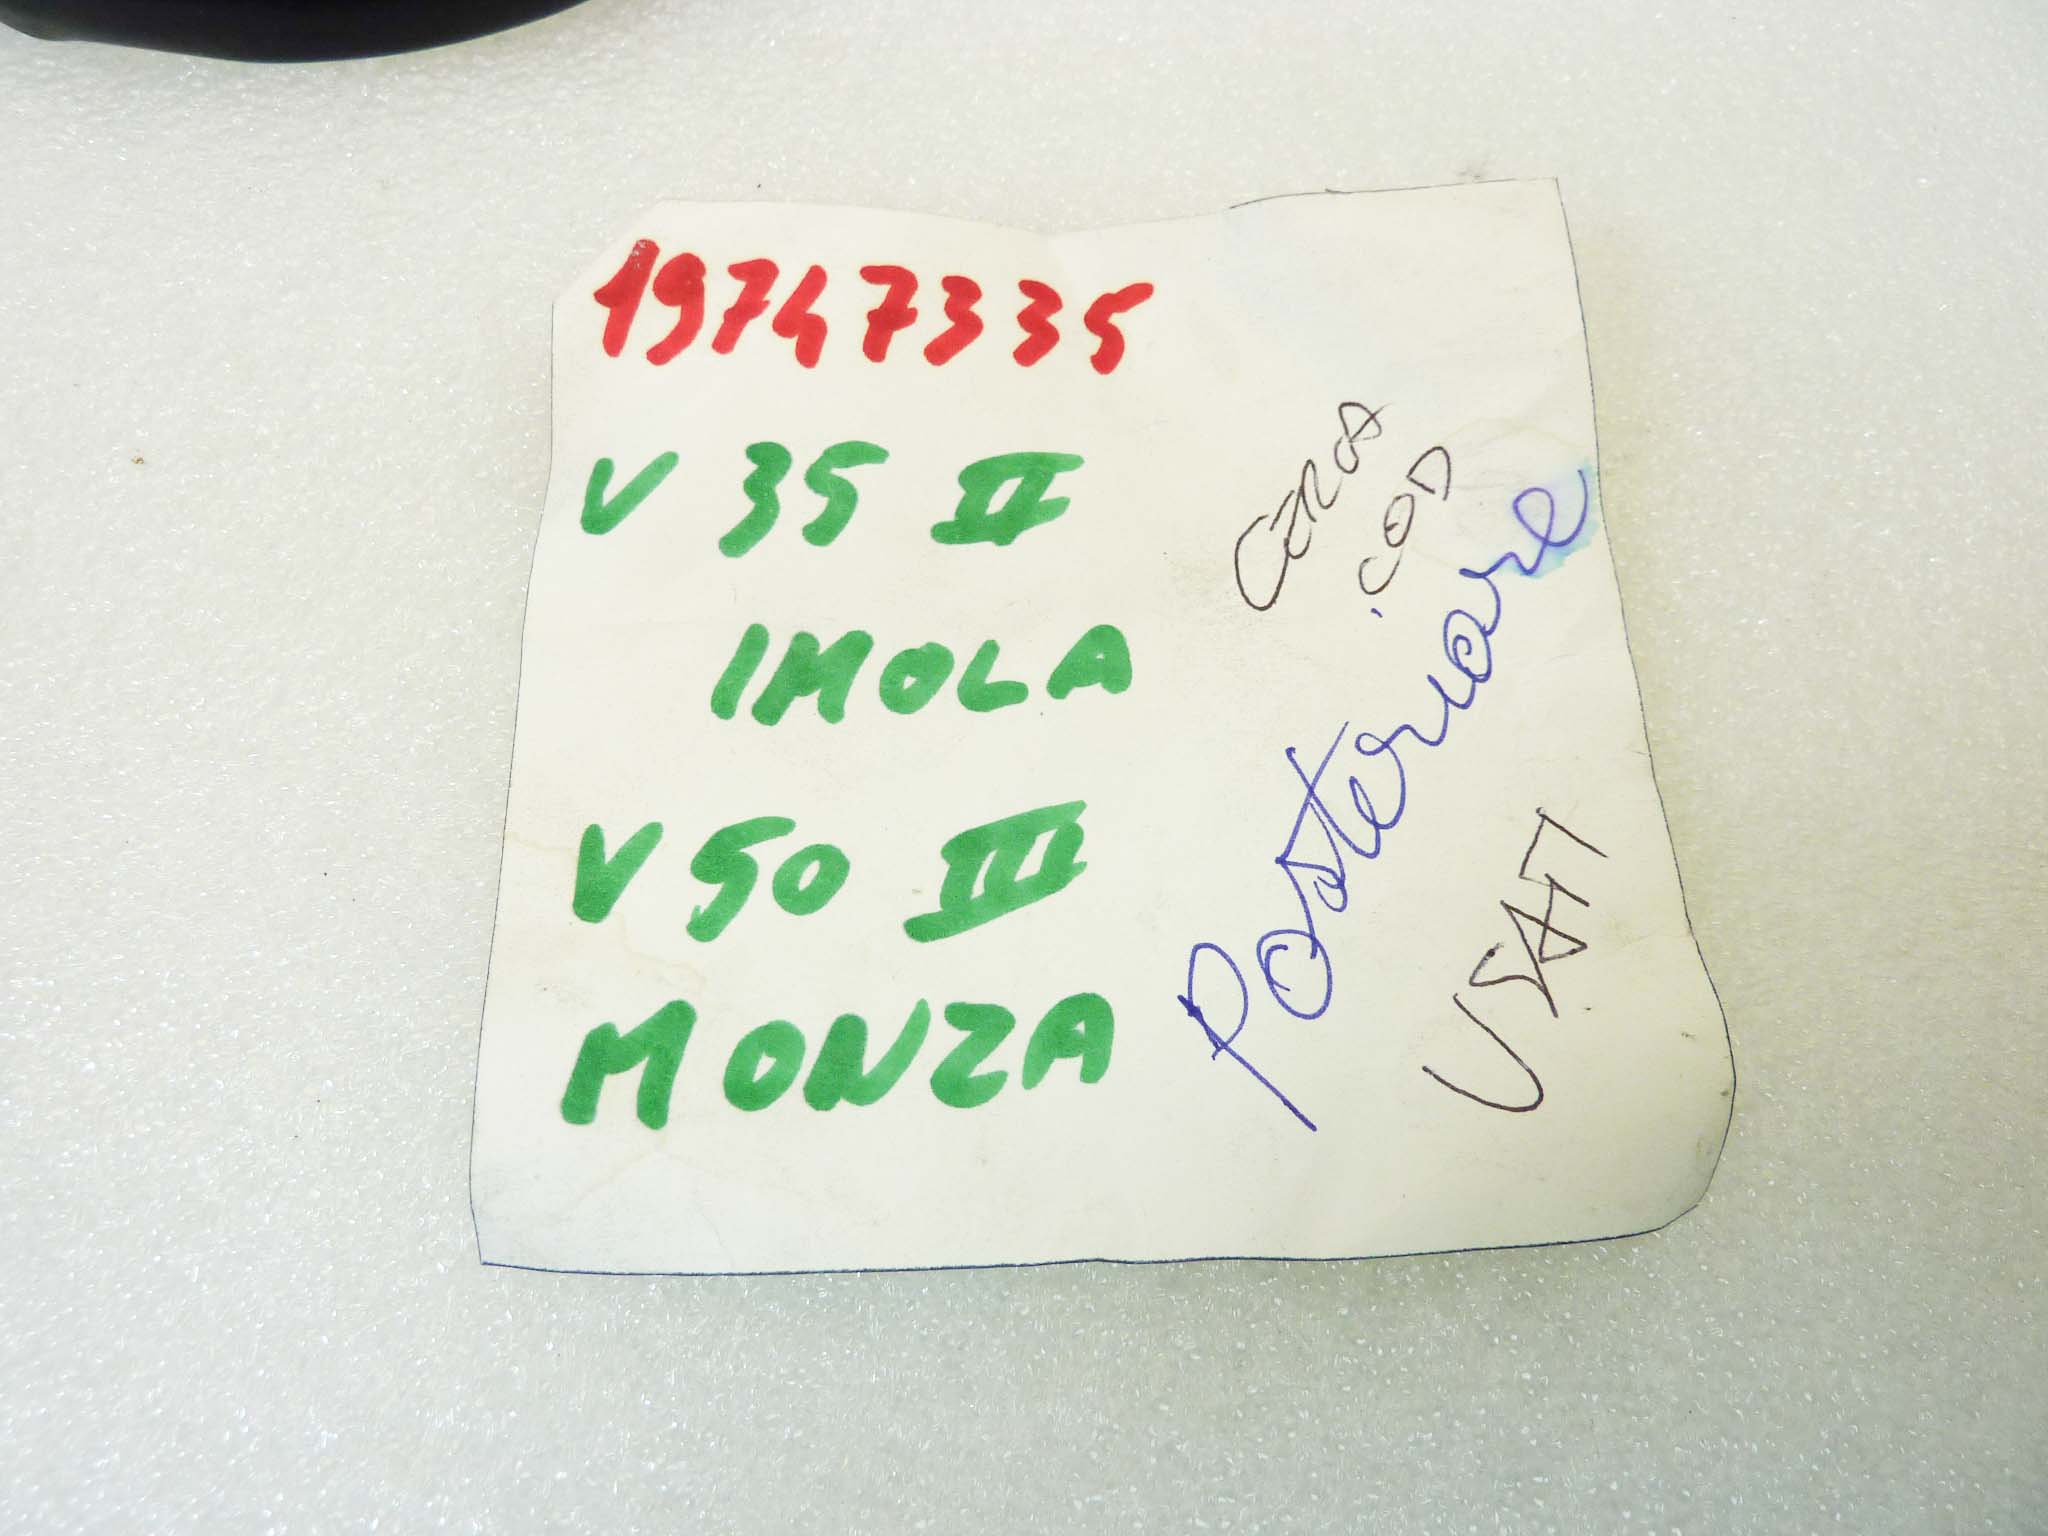 19747335
V 35 II
IMOLA
V 50 III
MONZA
CERCA
COD
Posteriore
USATI